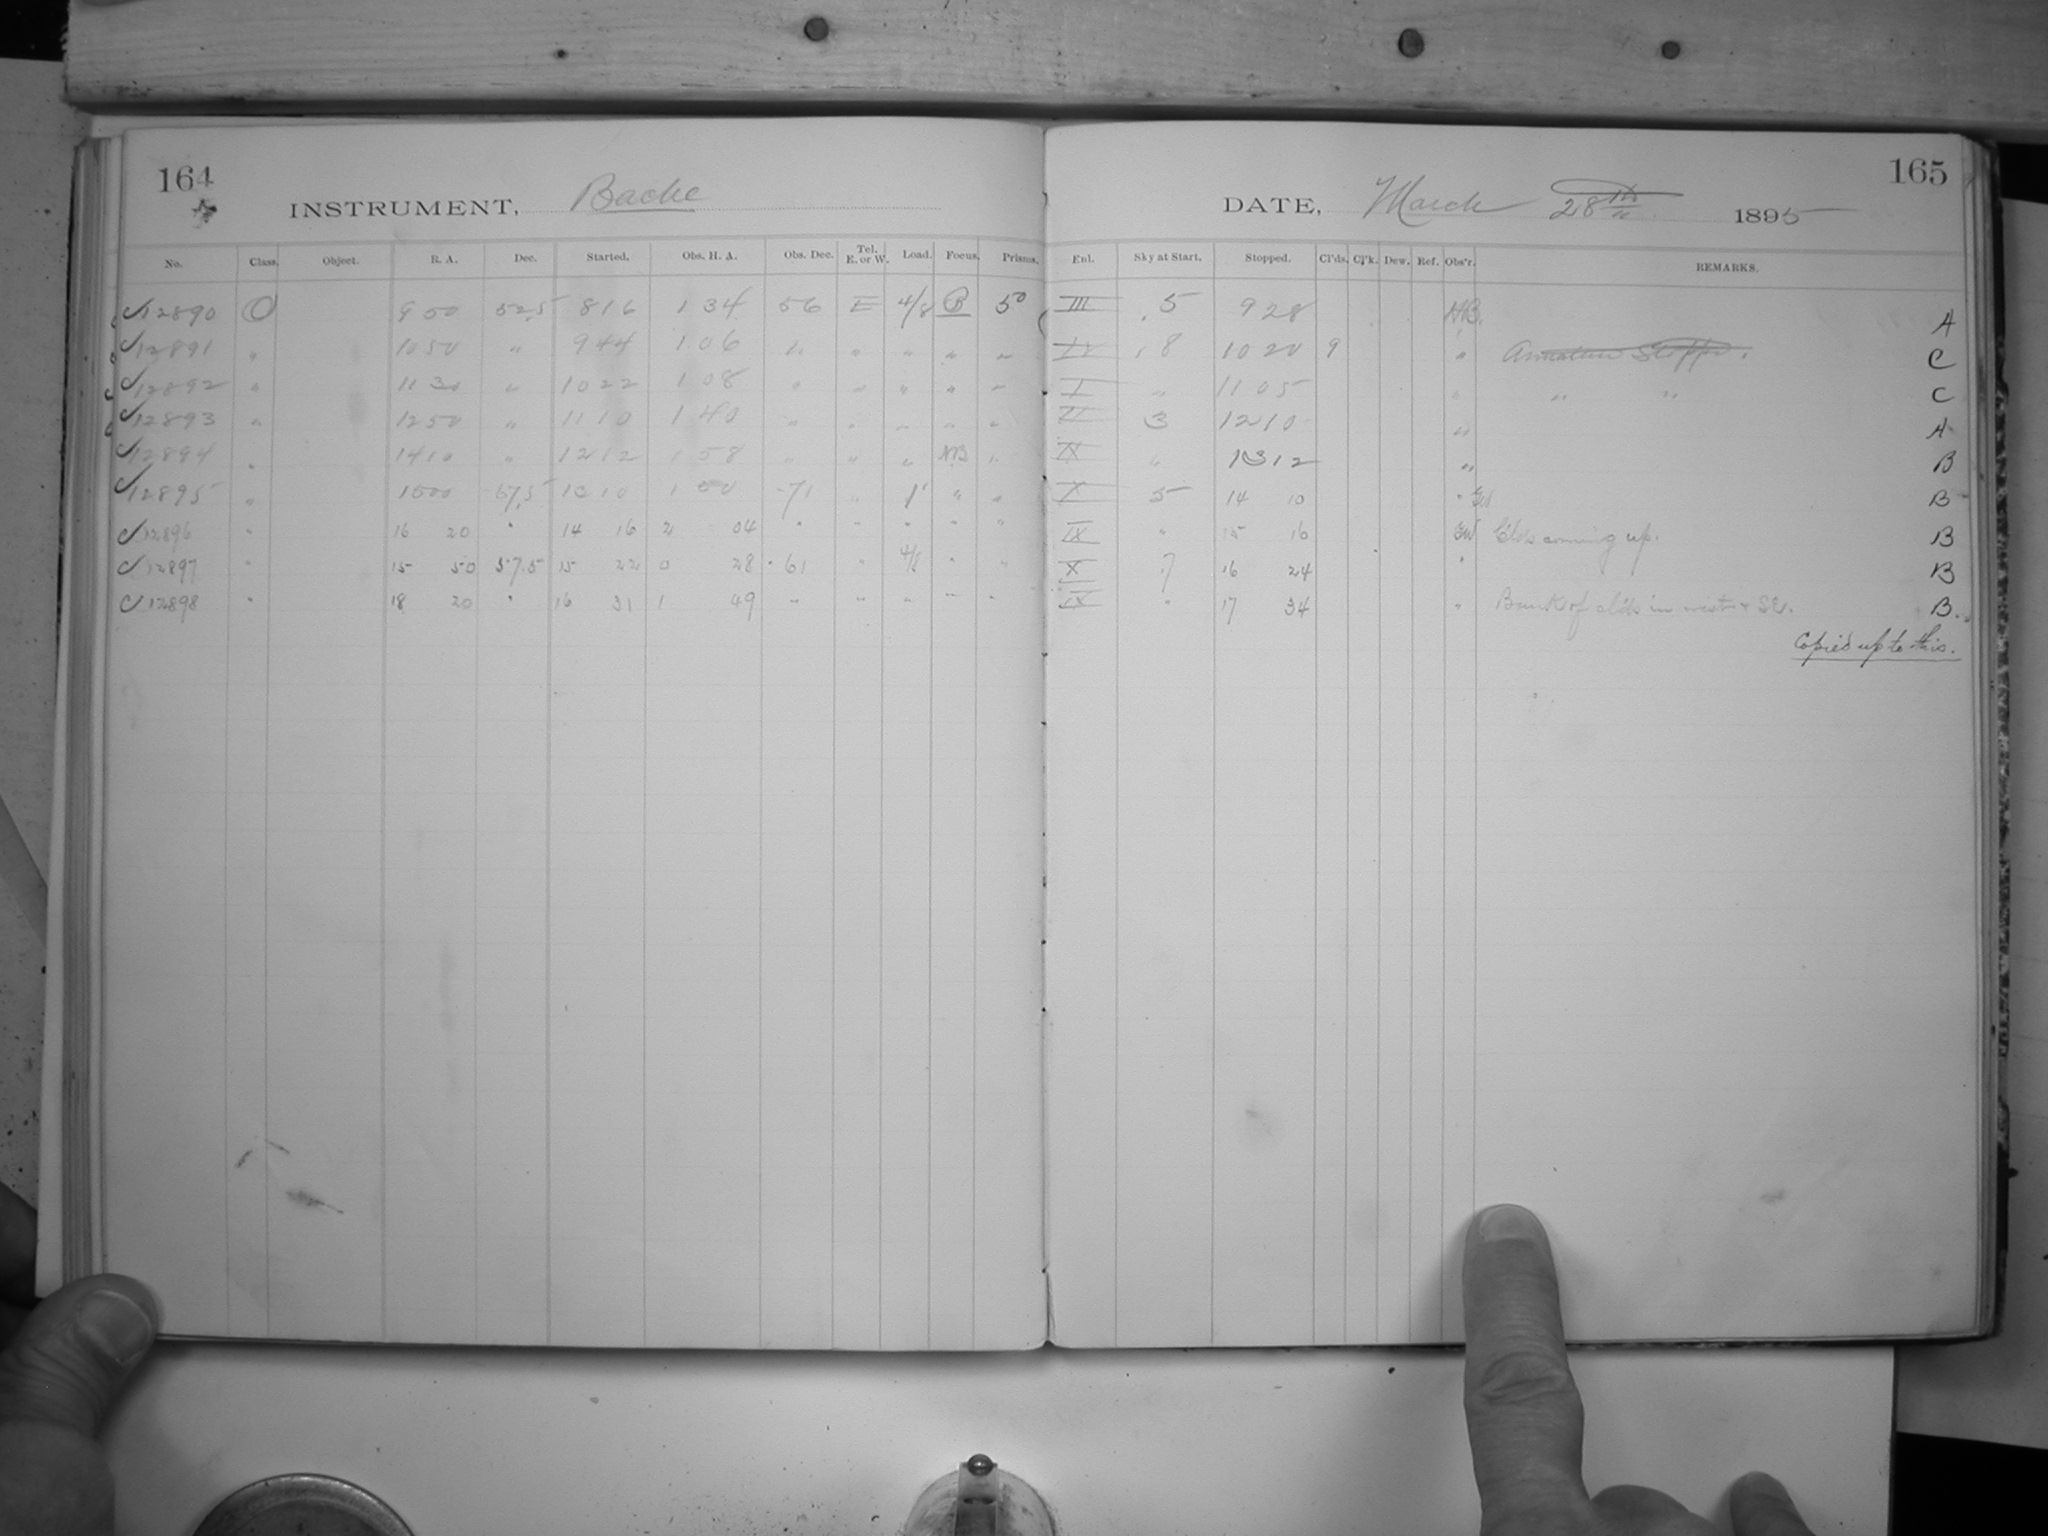 164
165
INSTRUMENT, Bache
DATE, March 28th 1895
No. Class. Object. R. A. Dec. Started. Obs. H. A. Obs. Dec. Tel. E. or W. Load. Focus. Prisms. Enl. Sky at Start. Stopped. Cl'ds. Cl'k. Dew. Ref. Obs'r. REMARKS.
12890 O 9 50 52.5 8 16 1 34 56 E 4/8 B 50 III .5 9 28 HB. A
12891 " 10 50 " 9 44 1 06 " " " " " IV .8 10 20 9 " C
12892 " 11 30 " 10 22 1 08 " " " " " I " 11 05 " " " C
12893 " 12 50 " 11 10 1 40 " " " " " II 3 12 10 " A
12894 " 14 10 " 12 12 1 58 " " " HB " IX " 13 12 " B
12895 " 15 00 67.5 13 10 1 50 -71 " 1 " " X 5 14 10 " B
12896 " 16 20 " 14 16 2 04 " " " " " IX " 15 16 Cl'ds coming up. B
12897 " 15 50 57.5 15 22 0 28 61 " 4/8 " " X .7 16 24 " B
12898 " 18 20 " 16 31 1 49 " " " " " IX " 17 34 " Bank of cl'ds in west & SE. B.
Copied up to this.